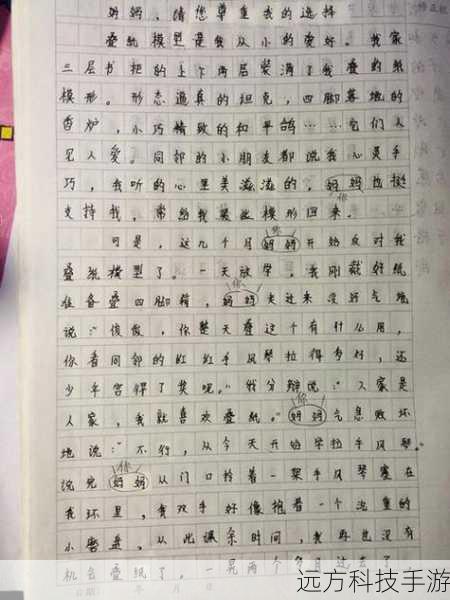 妈妈，请您尊重我的选择
叠纸模型是我从小的爱好。我家
三层书柜的上下两层装满了我叠的纸
模形。形态逼真的坦克，四脚落地的
香炉，小巧精致的和平鸽……它们人
见人爱。同邻的小朋友都说我心灵手
巧，我听的心里美滋滋的，妈妈也挺
支持我，常给我买些模形回来。
你
可是，这几个月妈妈开始反对我
叠纸模型了。一天放学，我刚裁好纸
你
准备叠四脚箱，妈妈走过来没好气地
说："俊俊，你整天叠这个有什么用，
你看同邻的红红手风琴拉得多好，还
少年宫得了奖呢。"我分辩说："人家是
你
人家，我就喜欢叠纸。"妈妈气急败坏
地说："不行，从今天开始学拉手风琴
你
说完妈妈从门口拎着一架手风琴塞在
我怀里，我双手好像抱着一个沉重的
小磨盘，从此课余时间，我再也没有
机会叠纸了，一晃两个多月过去了
远方科技手游